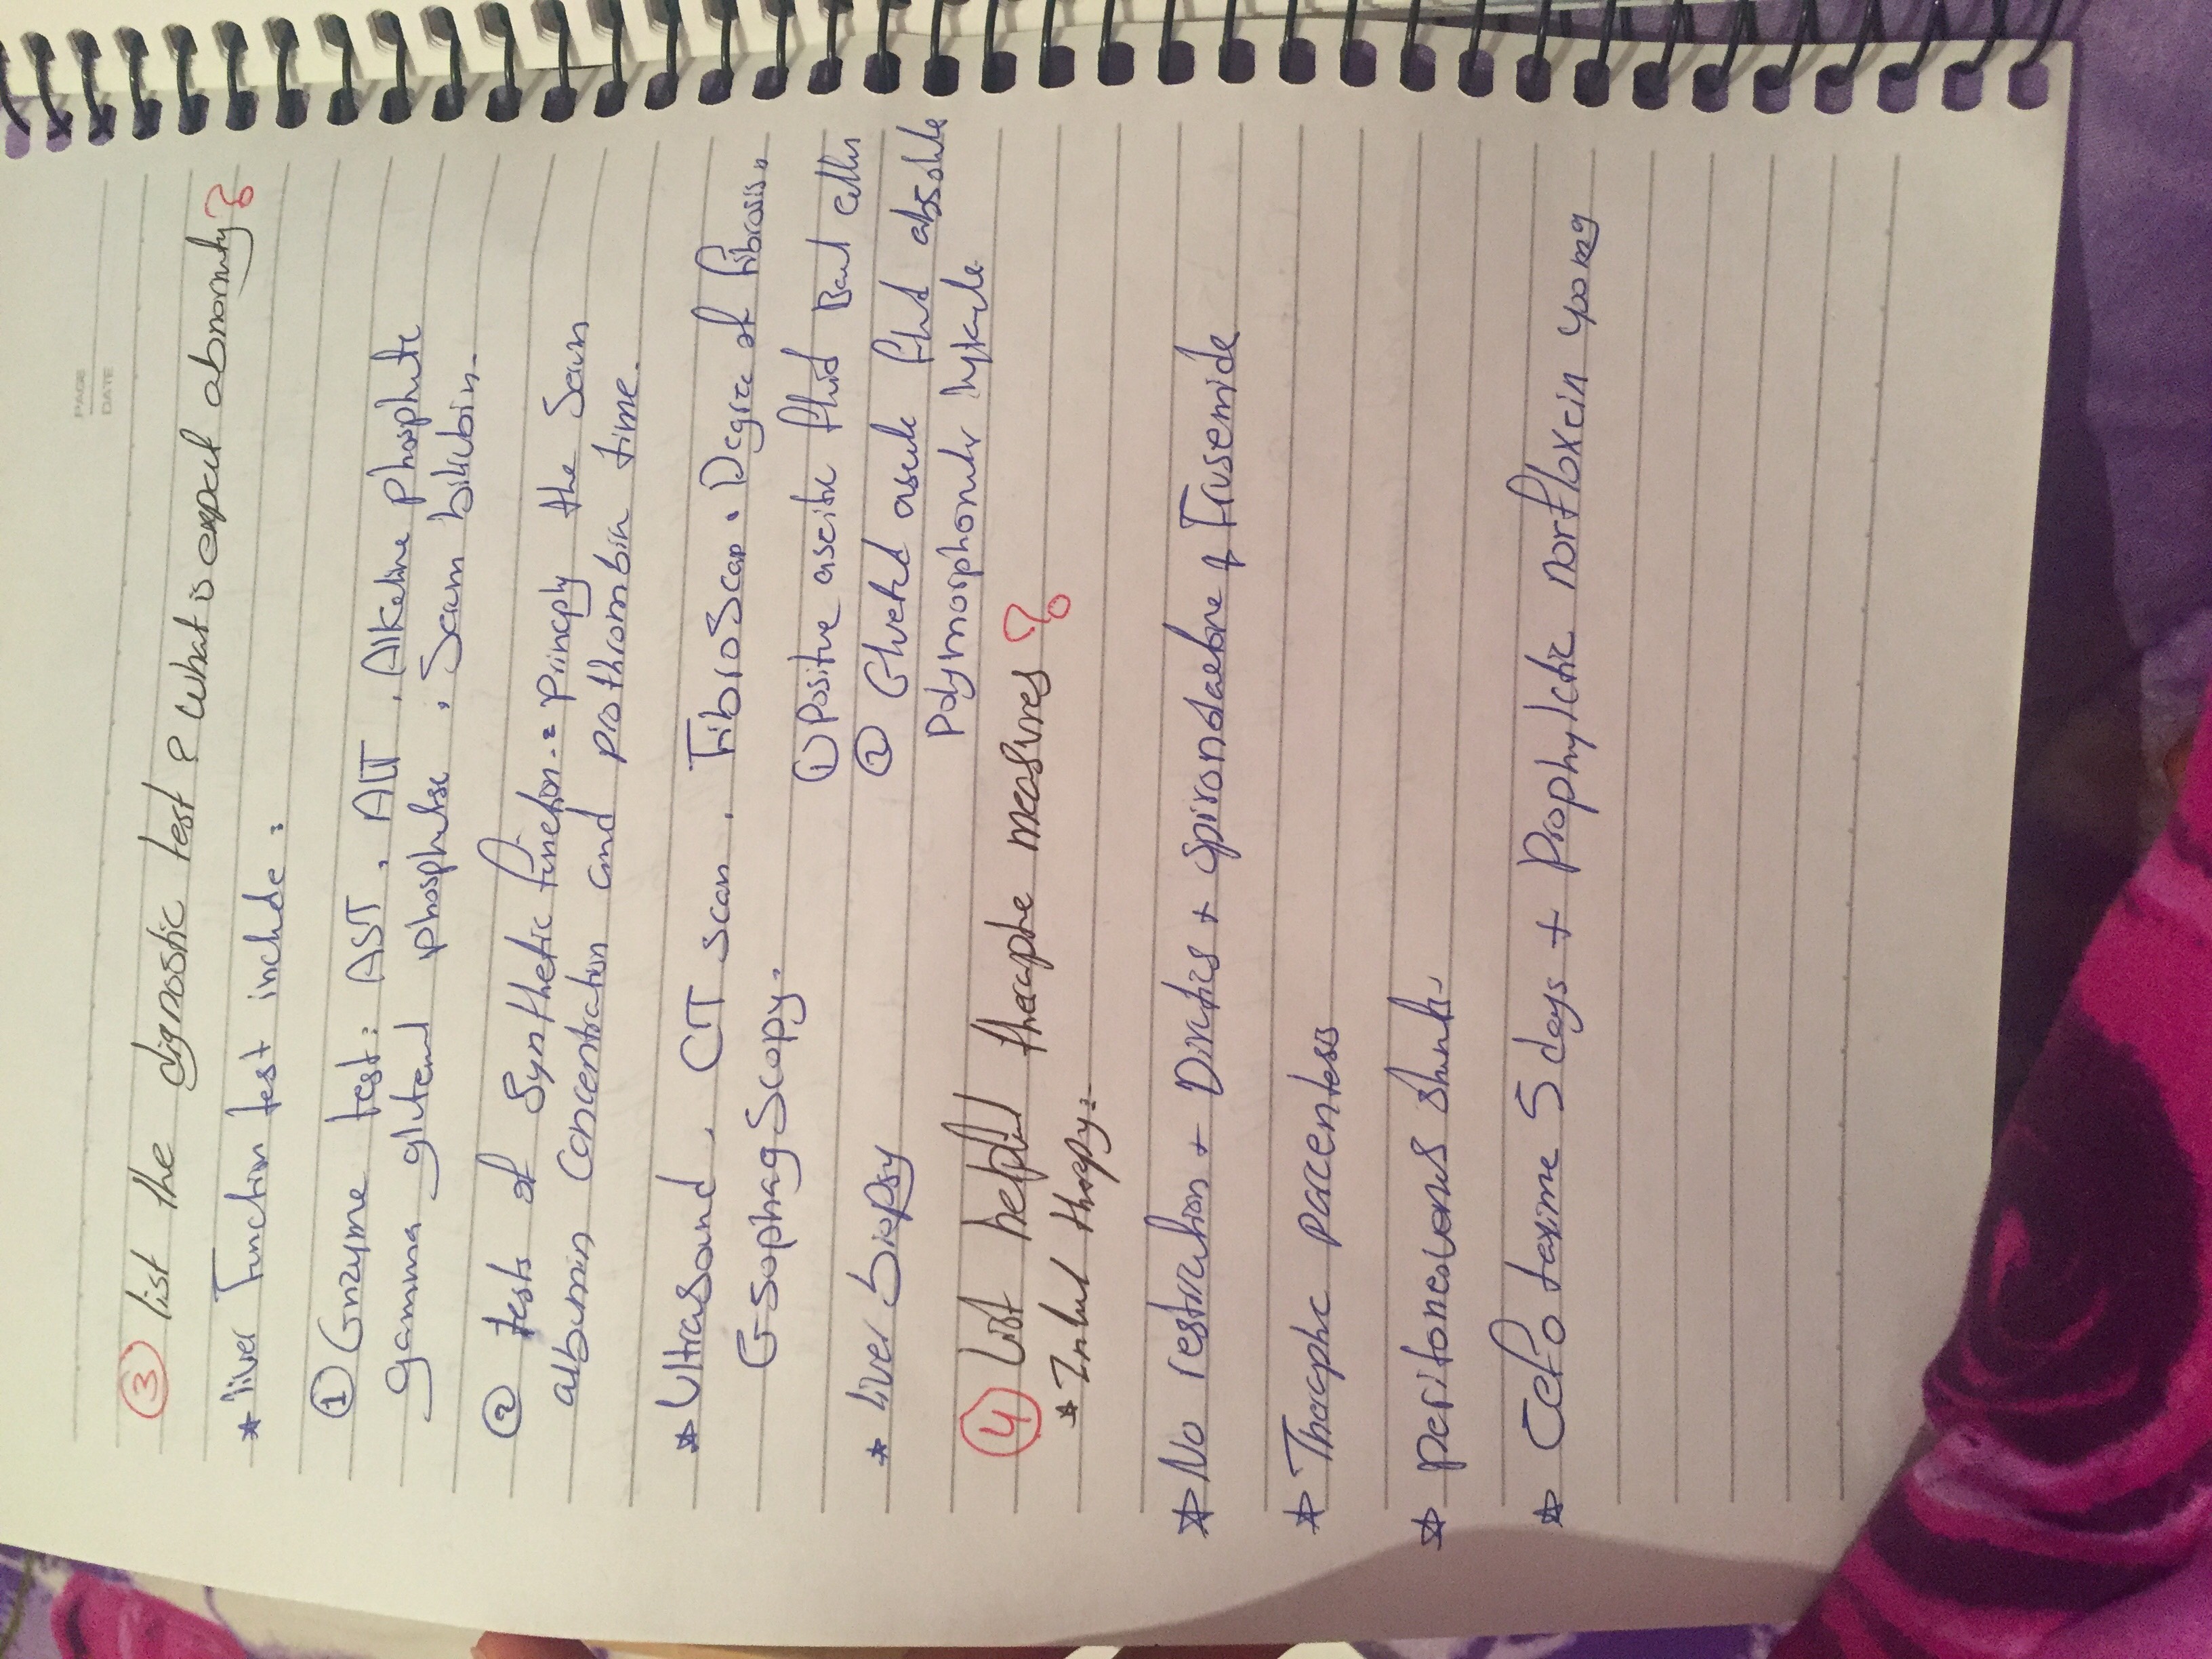 PAGE
DATE
③ list the dignostic test & what is expect abnormly?
* liver Function test include:
① Enzyme test: AST, ALT, Alkaline phosphate
gamma glutend phosphatase, Serum bilirubin.
② tests of Synthetic function = Princply the Serum
albumin concentration and prothrombin time.
* Ultrasound, CT scan, FibroScan. Degree of fibrosis.
EsophagScopy.
① Positive ascitic fluid Bact cultur
* liver biopsy
② Elveted ascitic fluid absolute
Polymorphonuclr lukcyte.
④ List helpful theraphe measures?
* Intial therapy:
* Na restrcation + Diructics + spironolactone & Frusemide
* Theraphic paracentesis
* peritoneovenus shunt.
* Cefotaxime 5 days + Prophylctic norfloxcin 400mg